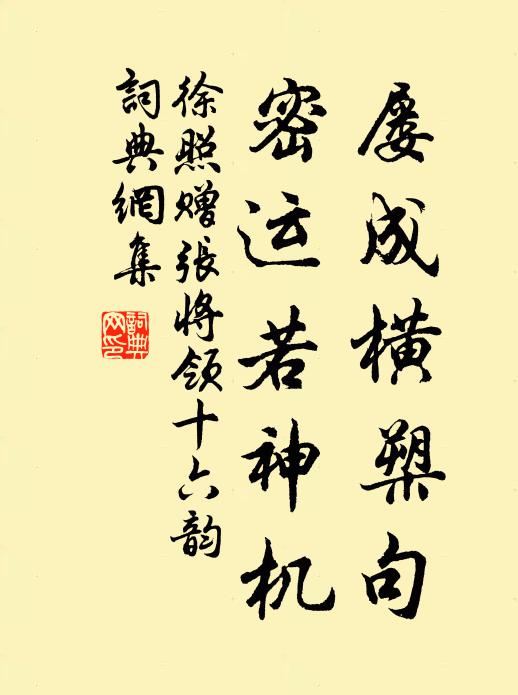 屡成横槊句
密运若神机
徐照赠張将领十六韵
詞典網集
詞典
网印